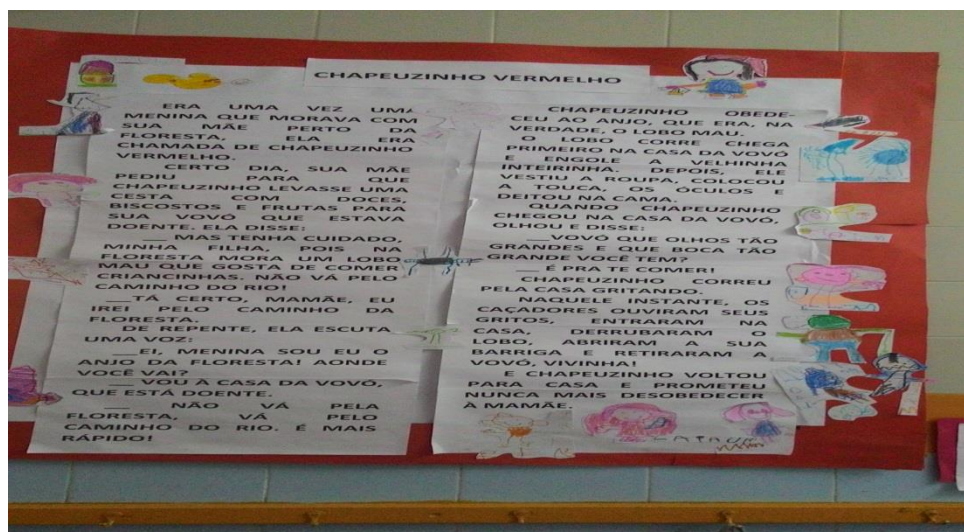 CHAPEUZINHO VERMELHO
ERA UMA VEZ UMA
MENINA QUE MORAVA COM
SUA MÃE PERTO DA
FLORESTA, ELA ERA
CHAMADA DE CHAPEUZINHO
VERMELHO.
CERTO DIA, SUA MÃE
PEDIU PARA QUE
CHAPEUZINHO LEVASSE UMA
CESTA COM DOCES,
BISCOSTOS E FRUTAS PARA
SUA VOVÓ QUE ESTAVA
DOENTE. ELA DISSE:
__ MAS TENHA CUIDADO,
MINHA FILHA, POIS NA
FLORESTA MORA UM LOBO
MAU QUE GOSTA DE COMER
CRIANCINHAS. NÃO VÁ PELO
CAMINHO DO RIO!
__TÁ CERTO, MAMÃE, EU
IREI PELO CAMINHO DA
FLORESTA.
DE REPENTE, ELA ESCUTA
UMA VOZ:
__EI, MENINA SOU EU O
ANJO DA FLORESTA! AONDE
VOCÊ VAI?
__ VOU À CASA DA VOVÓ,
QUE ESTÁ DOENTE.
__ NÃO VÁ PELA
FLORESTA. VÁ PELO
CAMINHO DO RIO. É MAIS
RÁPIDO!
CHAPEUZINHO OBEDE-
CEU AO ANJO, QUE ERA, NA
VERDADE, O LOBO MAU.
O LOBO CORRE CHEGA
PRIMEIRO NA CASA DA VOVÓ
E ENGOLE A VELHINHA
INTEIRINHA. DEPOIS, ELE
VESTIU A ROUPA, COLOCOU
A TOUCA, OS ÓCULOS E
DEITOU NA CAMA.
QUANDO CHAPEUZINHO
CHEGOU NA CASA DA VOVÓ,
OLHOU E DISSE:
__VOVÓ QUE OLHOS TÃO
GRANDES E QUE BOCA TÃO
GRANDE VOCÊ TEM?
__ É PRA TE COMER!
CHAPEUZINHO CORREU
PELA CASA GRITANDO.
NAQUELE INSTANTE, OS
CAÇADORES OUVIRAM SEUS
GRITOS, ENTRARAM NA
CASA, DERRUBARAM O
LOBO, ABRIRAM A SUA
BARRIGA E RETIRARAM A
VOVÓ, VIVINHA!
E CHAPEUZINHO VOLTOU
PARA CASA E PROMETEU
NUNCA MAIS DESOBEDECER
À MAMÃE.